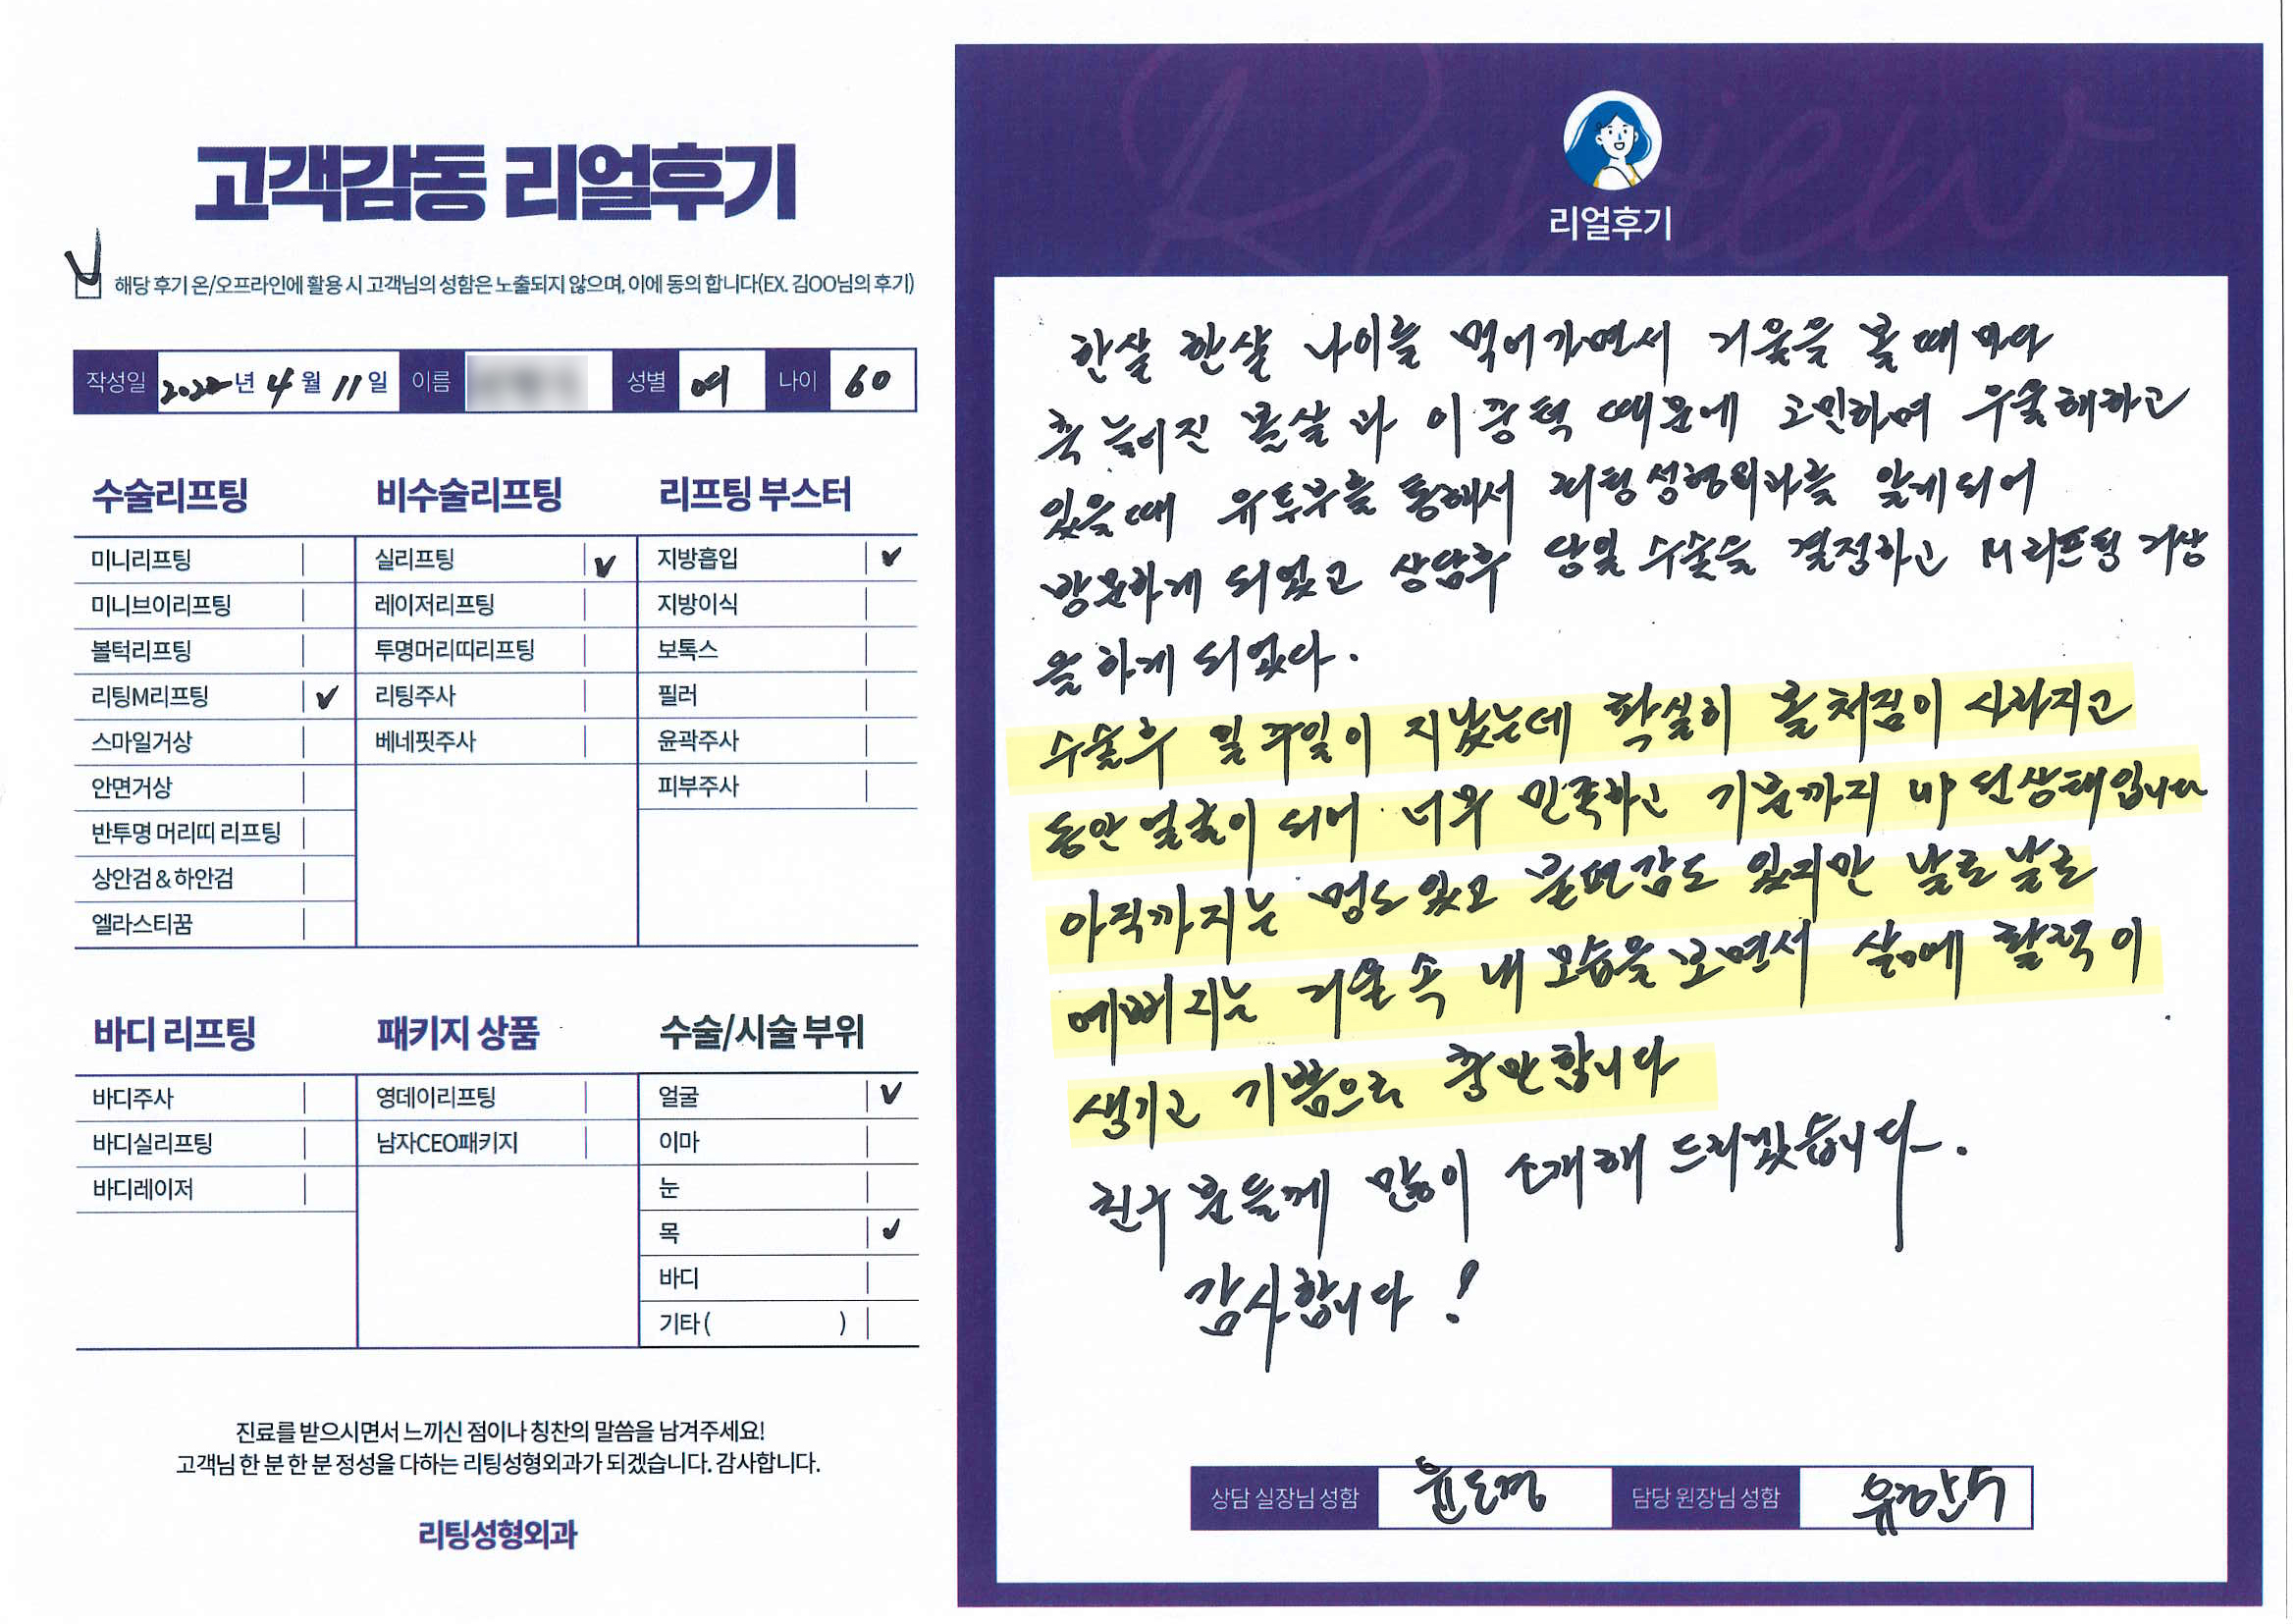 고객감동 리얼후기
해당 후기 온/오프라인에 활용 시 고객님의 성함은 노출되지 않으며, 이에 동의 합니다(EX. 김OO님의 후기)
작성일 2022년 4월 11일 이름 성별 여 나이 60
수술리프팅
미니리프팅
미니브이리프팅
볼턱리프팅
리팅M리프팅 ✓
스마일거상
안면거상
반투명 머리띠 리프팅
상안검 & 하안검
엘라스티꿈
비수술리프팅
실리프팅 ✓
레이저리프팅
투명머리띠리프팅
리팅주사
베네핏주사
리프팅 부스터
지방흡입 ✓
지방이식
보톡스
필러
윤곽주사
피부주사
바디 리프팅
바디주사
바디실리프팅
바디레이저
패키지 상품
영데이리프팅
남자CEO패키지
수술/시술 부위
얼굴 ✓
이마
눈
목 ✓
바디
기타 ( )
진료를 받으시면서 느끼신 점이나 칭찬의 말씀을 남겨주세요!
고객님 한 분 한 분 정성을 다하는 리팅성형외과가 되겠습니다. 감사합니다.
리팅성형외과
Review
리얼후기
한살 한살 나이를 먹어가면서 거울을 볼때마다
축 늘어진 볼살과 이중턱 때문에 고민하며 우울해하고
있을때 유투부를 통해서 리팅성형외과를 알게되어
방문하게 되었고 상담후 당일 수술을 결정하고 M리프팅 거상
을 하게 되었다.
수술후 일주일이 지났는데 확실히 볼처짐이 사라지고
동안얼굴이 되어 너무 만족하고 기분까지 up 된상태입니다
아직까지는 멍도있고 불편감도 있지만 날로날로
예뻐지는 거울속 내모습을 보면서 삶에 활력이
생기고 기쁨으로 충만합니다
친구분들께 많이 소개해 드리겠습니다.
감사합니다!
상담 실장님 성함 윤도경 담당 원장님 성함